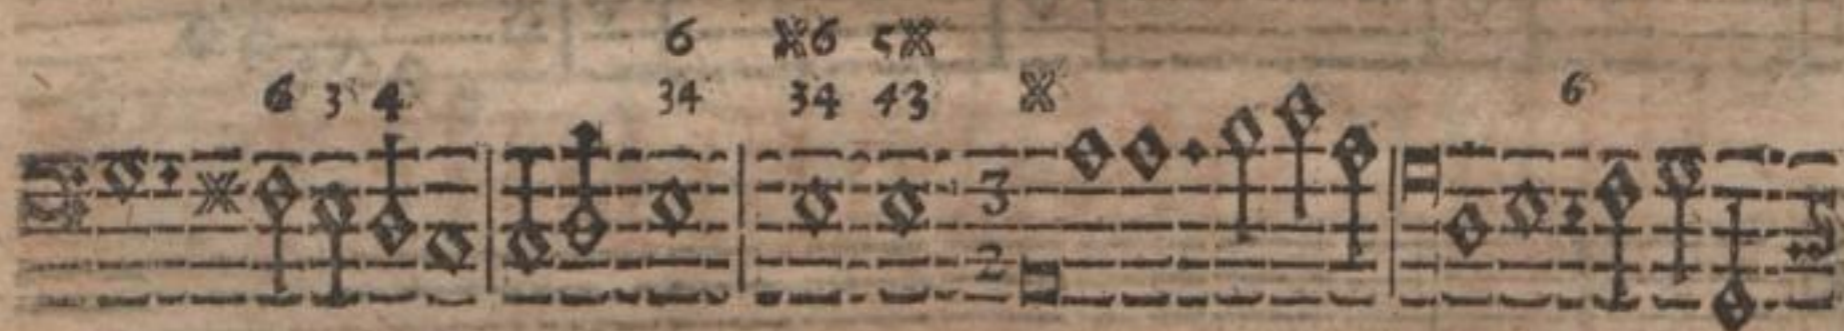 6 6 5
6 3 4 34 34 43 6
3
2